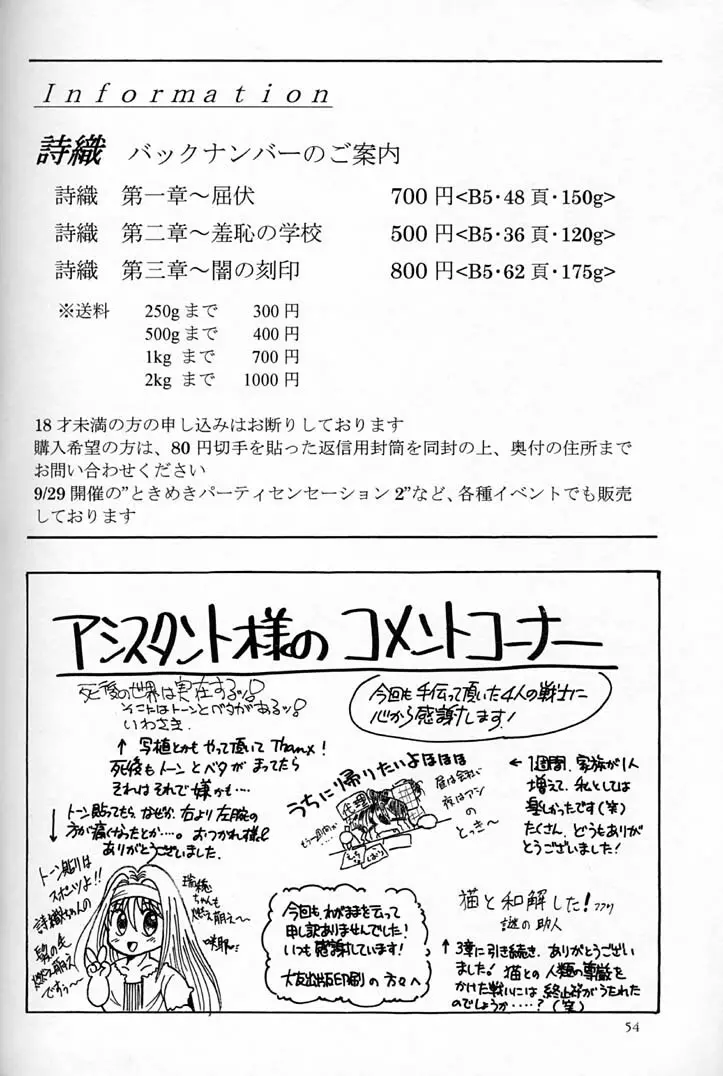 Information
詩織 バックナンバーのご案内
詩織 第一章～屈伏 700円<B5・48頁・150g>
詩織 第二章～羞恥の学校 500円<B5・36頁・120g>
詩織 第三章～闇の刻印 800円<B5・62頁・175g>
※送料 250gまで 300円
500gまで 400円
1kg まで 700円
2kg まで 1000円
18才未満の方の申し込みはお断りしております
購入希望の方は、80円切手を貼った返信用封筒を同封の上、奥付の住所まで
お問い合わせください
9/29開催の”ときめきパーティセンセーション2”など、各種イベントでも販売
しております
アシスタント様のコメントコーナー
死後の世界は実在するッ!
そこにはトーンとベタがあるッ!
いわさき
今回も手伝って頂いた4人の戦士に
心から感謝します!
↑写植とかもやって頂いてThanx!
死後もトーンとベタがまってたら
それはそれで嫌かも…
うちに帰りたいよほほほ
昼は会社い
夜はアシ
の
とっき〜
←1週間、家族が1人
増えて、私としては
楽しかったです(笑)
たくさん、どうもありが
とうございました!
↓トーン貼ってもら、なぜか、右より左腕の
方が痛くなったとか…。おつかれ様!
ありがとうございました。
トーン貼りは
スポーツよ!!
詩織ちゃんの
髪の毛
燃え萌え
ですぅ〜
瑞穂
ちゃんも
燃え萌え〜
咲耶
今回も、わがままを云って
申し訳ありませんでした!
いつも感謝しています!
大友出版印刷の方々へ
猫と和解した!フフリ
謎の助人
↑3章に引き続き、ありがとうござい
ました!猫との人類の尊厳を
かけた戦いには終止符がうたれた
のでしょうか……?(笑)
54